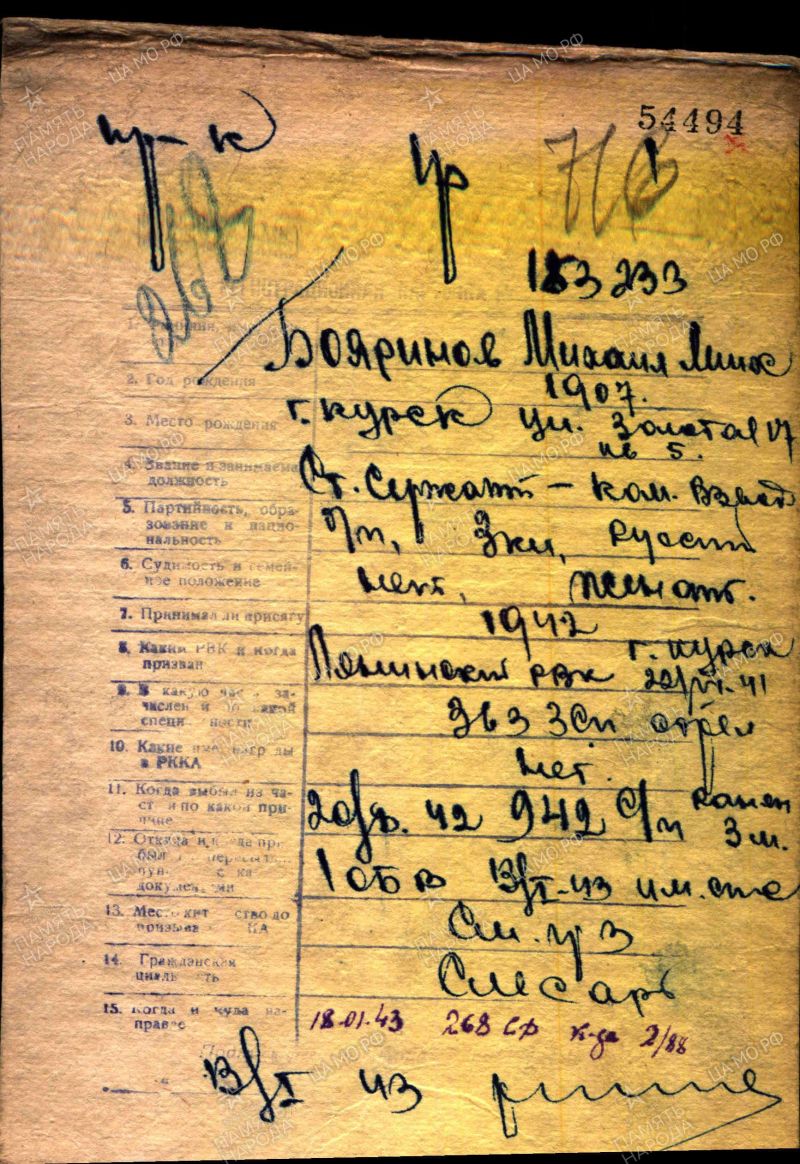 54494
пр-к
пр
262
153 233
1. Фамилия, и
Бояринов Михаил Мих
2. Год рождения
1907.
3. Место рождения
г. Курск ул. Золотая 17
кв 5.
4. Звание и занимаема
должность
Ст. Сержант - ком. взвод
5. Партийность, обра-
зование и нацио-
нальность
б/п, 3кл, русский
6. Судимость и семей-
ное положение
нет, женат.
7. Принимал ли присягу
1942
8. Каким РВК и когда
призван
г. Курск
Ленинский РВК 22/VI.41
9. В какую час за-
числен и по какой
специ ности
363 ЗСП стрел
10. Какие име наг ды
в РККА
нет.
11. Когда выбыл из ча-
ст и по какой при-
чине
20/ 42 942 с/п ранен
3 м.
12. Откуда и когда при
был пересы
пун с ка
докумен ми
1 ОБВ 13/I-43
13. Мест жит ство до
призыва КА
См. п 3
14. Гражданская
специаль ть
Слесарь
15. Когда и куда на-
правле
18.01.43 268 СД к-да 2/88
13/I 43